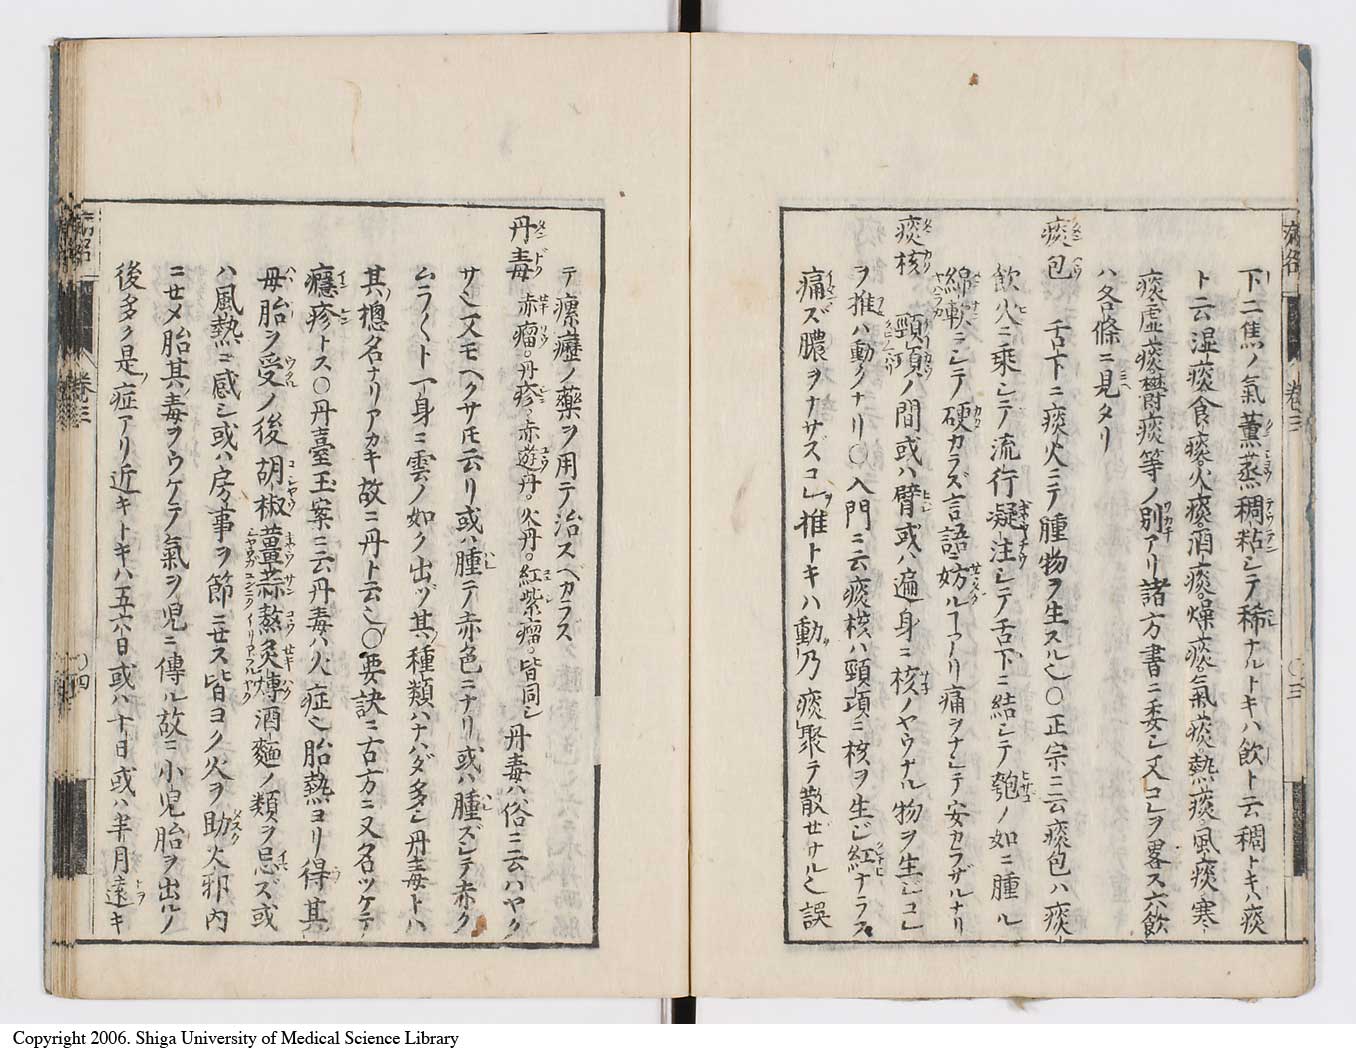 下二焦ノ氣薫蒸稠粘シテ稀ナルトキハ飲ト云稠トキハ痰
ト云湿痰食痰火痰酒痰燥痰氣痰熱痰風痰寒
痰虚痰欝痰等ノ別アリ諸方書ニ委シ又コレヲ畧ス六飲
ハ各條ニ見タリ
痰包 舌下ニ痰火ニテ腫物ヲ生スル也○正宗ニ云痰包ハ痰
飲火ニ乘シテ流行凝注シテ舌下ニ結シテ匏ノ如ニ腫ル
綿軟ニシテ硬カラズ言語ニ妨ルヿアリ痛ヲナシテ安カラザルナリ
痰核 頸項ノ間或ハ臂或ハ遍身ニ核ノヤウナル物ヲ生シコレ
ヲ推ハ動クナリ○入門ニ云痰核ハ頸項ニ核ヲ生シ紅ナラス
痛ズ膿ヲナサズコレヲ推トキハ動ク乃痰聚テ散ゼサル也誤
テ瘰癧ノ藥ヲ用テ治スベカラス
丹毒 赤瘤。丹疹。赤遊丹。火丹。紅紫瘤。皆同シ 丹毒ハ俗ニ云ハヤク
サ也又モヘクサ𪜈云リ或ハ腫テ赤色ニナリ或ハ腫ズシテ赤ク
ムラ〱ト一身ニ雲ノ如ク出ヅ其種類ハナハダ多シ丹毒トハ
其ノ㹅名ナリアカキ故ニ丹ト云也○要訣ニ古方ニ又名ツケテ
癮疹トス○丹臺玉案ニ云丹毒ハ火症也胎熱ヨリ得其
母胎ヲ受ノ後胡椒薑蒜熬灸摶酒麺ノ類ヲ忌ズ或
ハ風熱ニ感シ或ハ房事ヲ節ニセス皆ヨノ火ヲ助火邪内
ニセメ胎其毒ヲウケテ氣ヲ児ニ傳ル故ニ小児胎ヲ出ルノ
後多ク是ノ症アリ近キトキハ五六日或ハ十日或ハ半月遠キ
病名 巻三 ○三
病名 巻三 ○四
Copyright 2006. Shiga University of Medical Science Library